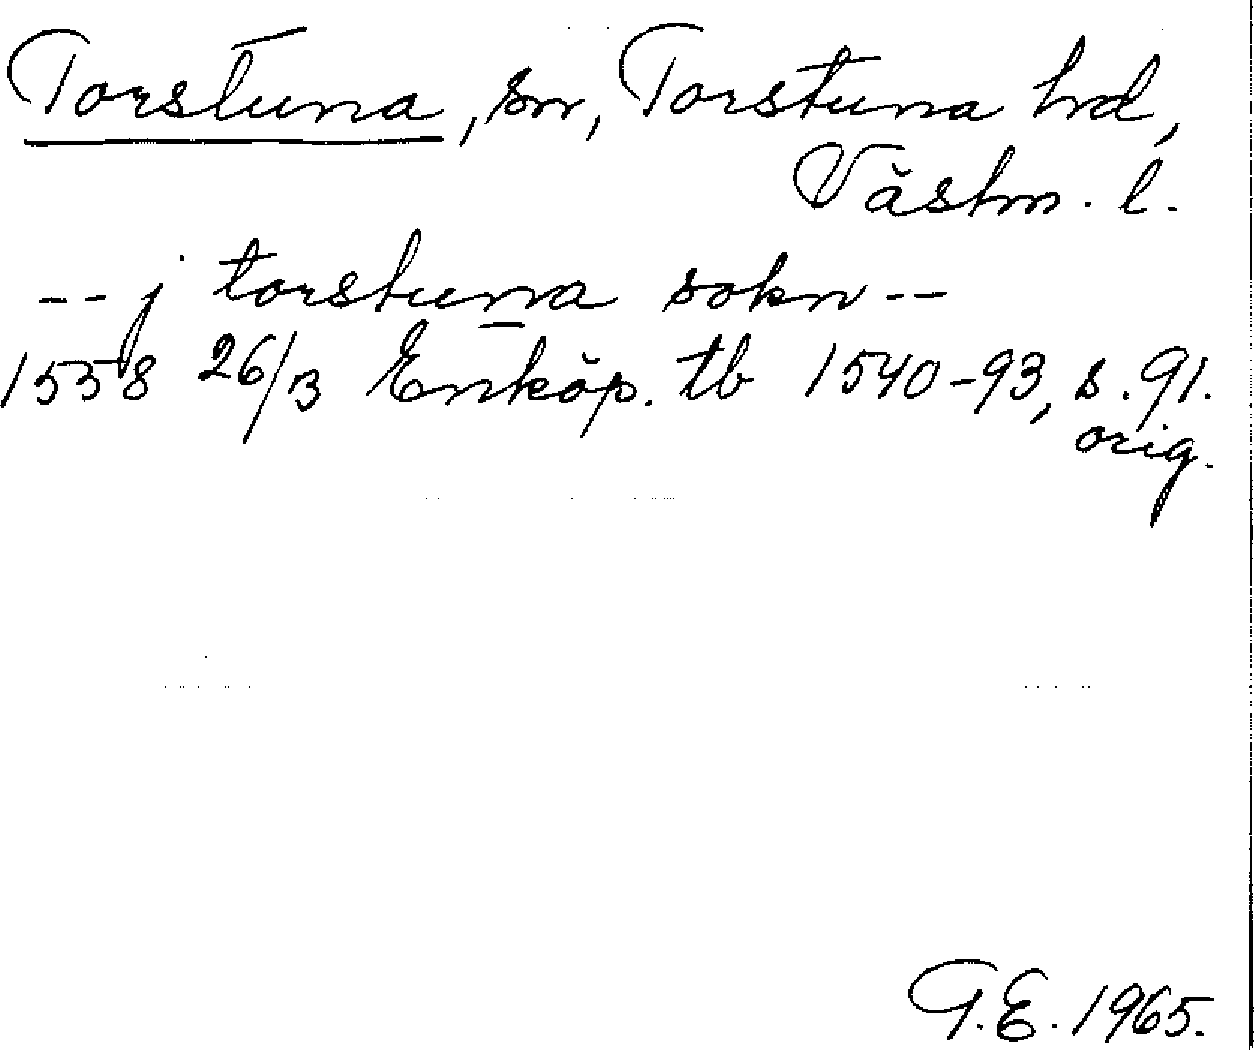 Torstuna, sn, Torstuna hd,
Västm. l.
-- j torstuna sokn --
1558 26/3 Enköp. tb 1540-93, s. 91.
orig.
G.E. 1965.